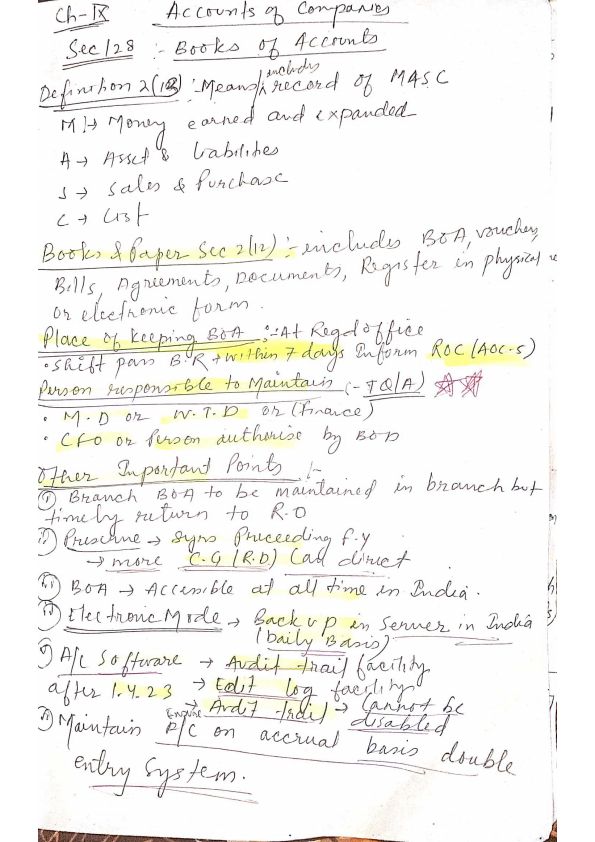 Ch-IX Accounts of Companies
Sec 128 :- Books of Accounts
Definition 2(13) :- Means/includes record of MASC
M → Money earned and expanded
A → Asset & Liabilities
S → Sales & Purchase
C → Cost
Books & Paper Sec 2(12) :- includes BOA, vouchers,
Bills, Agreements, Documents, Register in physical
or electronic form.
Place of keeping BOA :- At Regd office
• Shift pass B.R + within 7 days Inform ROC (AOC-5)
Person responsible to Maintain :- TQ(A)
• M.D or W.T.D or (Finance)
• CFO or Person authorise by BOD
Other Important Points :-
(i) Branch BOA to be maintained in branch but
timely return to R.O
(ii) Preserve → 8yrs Preceeding f.y
→ more C.G (R.D) Can direct
(iii) BOA → Accessible at all time in India.
(iv) Electronic Mode → Back up in Server in India
(Daily Basis)
(v) A/c Software → Audit trail facility
after 1.4.23 → Edit log facility
→ Audit trail → Cannot be
disabled
(vi) Maintain P/C on accrual basis double
entry System.